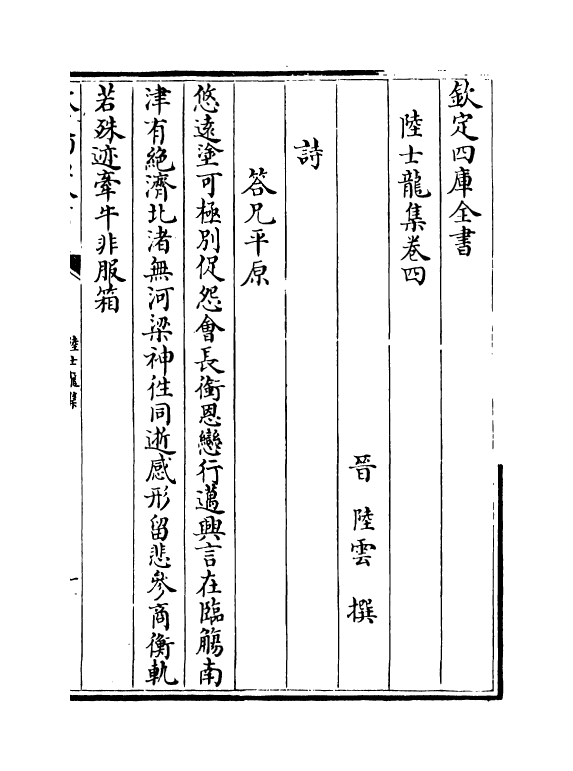 欽定四庫全書
陸士龍集卷四
晉 陸雲 撰
詩
答兄平原
悠遠塗可極別促怨會長銜恩戀行邁興言在臨觴南
津有絶濟北渚無河梁神徃同逝感形留悲參商衡軌
若殊迹牽牛非服箱
陸士龍集
一